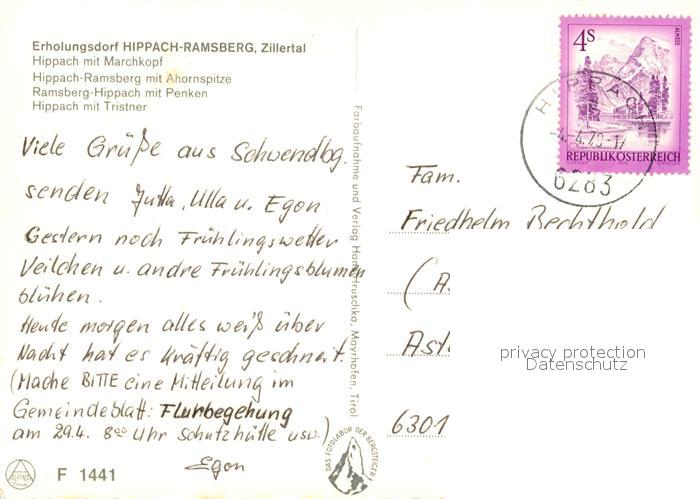 Erholungsdorf HIPPACH-RAMSBERG, Zillertal
Hippach mit Marchkopf
Hippach-Ramsberg mit Ahornspitze
Ramsberg-Hippach mit Penken
Hippach mit Tristner
Viele Grüße aus Schwendbg.
senden Jutta, Ulla u. Egon
Gestern noch Frühlingswetter
Veilchen u. andre Frühlingsblumen
blühen.
Heute morgen alles weiß über
Nacht hat es kräftig geschneit.
(Mache BITTE eine Mitteilung im
Gemeindeblatt: Flurbegehung
am 29.4. 8⁰⁰ Uhr Schutzhütte usw.)
Egon
F 1441
Farbaufnahme und Verlag Hans Hruschka, Mayrhofen, Tirol
DAS FOTOLABOR DER BERGSTEIGER
4S
ALMSEE
REPUBLIK ÖSTERREICH
HIPPACH
6283
Fam.
Friedhelm Bechthold
(A.
Ast
6301
privacy protection
Datenschutz